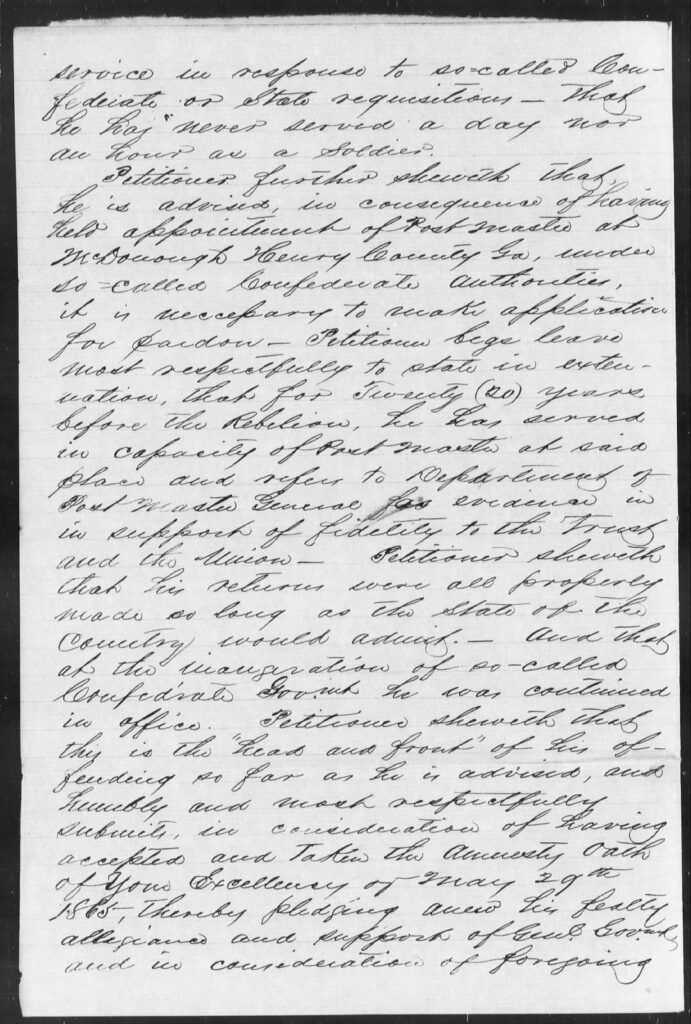 service in response to so=called Con-
federate or State requisitions — that
he has "never served a day nor
an hour as a Soldier.
Petitioner further sheweth that,
he is advised, in consequence of having
held appointment of Post Master at
McDonough Henry County Ga, under
so=called Confederate Authorities,
it is neccessary to make application
for pardon — Petitioner begs leave
most respectfully to state in exten-
uation, that for Twenty (20) years
before the Rebelion, he has served
in capacity of Post Master at said
place and refers to Department of
Post Master General for evidence in
in support of fidelity to the Trust
and the Union — Petitioner sheweth
that his returns were all properly
made so long as the State of the
Country would admit. — And that
at the inaugeration of so-called
Confedrate Govmt he was continued
in office. Petitioner sheweth that
this is the "head and front" of his of-
fending so far as he is advised, and
humbly and most respectfully
submits, in consideration of having
accepted and Taken the Amnesty Oath
of Your Excellency of May 29th
1865, thereby pledging anew his fealty
allegiance and support of Genl. Govmt,
and in consideration of foregoing